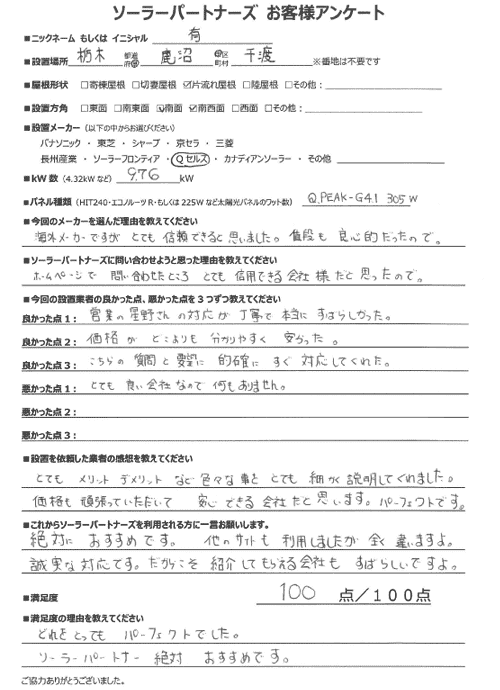 ソーラーパートナーズ お客様アンケート
■ニックネーム もしくは イニシャル 有
■設置場所 栃木 都道府県 鹿沼 市区町村 千渡 ※番地は不要です
■屋根形状 □寄棟屋根 □切妻屋根 ☑片流れ屋根 □陸屋根 □その他:
■設置方角 □東面 □南東面 ☑南面 ☑南西面 □西面 □その他:
■設置メーカー (以下の中からお選びください)
パナソニック ・ 東芝 ・ シャープ ・ 京セラ ・ 三菱
長州産業 ・ ソーラーフロンティア ・ Qセルズ ・ カナディアンソーラー ・ その他
■kW数 (4.32kWなど) 9.76 kW
■パネル種類 (HIT240・エコノルーツR・もしくは 225W など太陽光パネルのワット数) Q.PEAK-G4.1 305 W
■今回のメーカーを選んだ理由を教えてください
海外メーカーですが とても 信頼できると思いました。 値段も 良心的だったので。
■ソーラーパートナーズに問い合わせようと思った理由を教えてください
ホームページで 問い合わせたところ とても 信用できる会社様だと思ったので。
■今回の設置業者の良かった点、悪かった点を3つずつ教えてください
良かった点1: 営業の星野さんの対応が丁寧で本当に すばらしかった。
良かった点2: 価格が どこよりも 分かりやすく 安かった 。
良かった点3: こちらの 質問と要望に 的確に すぐ 対応してくれた。
悪かった点1: とても 良い会社なので 何もありません。
悪かった点2:
悪かった点3:
■設置を依頼した業者の感想を教えてください
とても メリット デメリット など 色々な事を とても 細かく 説明してくれました。
価格も 頑張っていただいて 安心できる 会社だと思います。 パーフェクトです。
■これからソーラーパートナーズを利用される方に一言お願いします。
絶対に おすすめです。 他のサイトも 利用しましたが 全く 違いますよ。
誠実な対応です。だからこそ 紹介してもらえる会社も すばらしいですよ。
■満足度 100 点/100点
■満足度の理由を教えてください
どれをとっても パーフェクトでした。
ソーラーパートナー 絶対 おすすめです。
ご協力ありがとうございました。